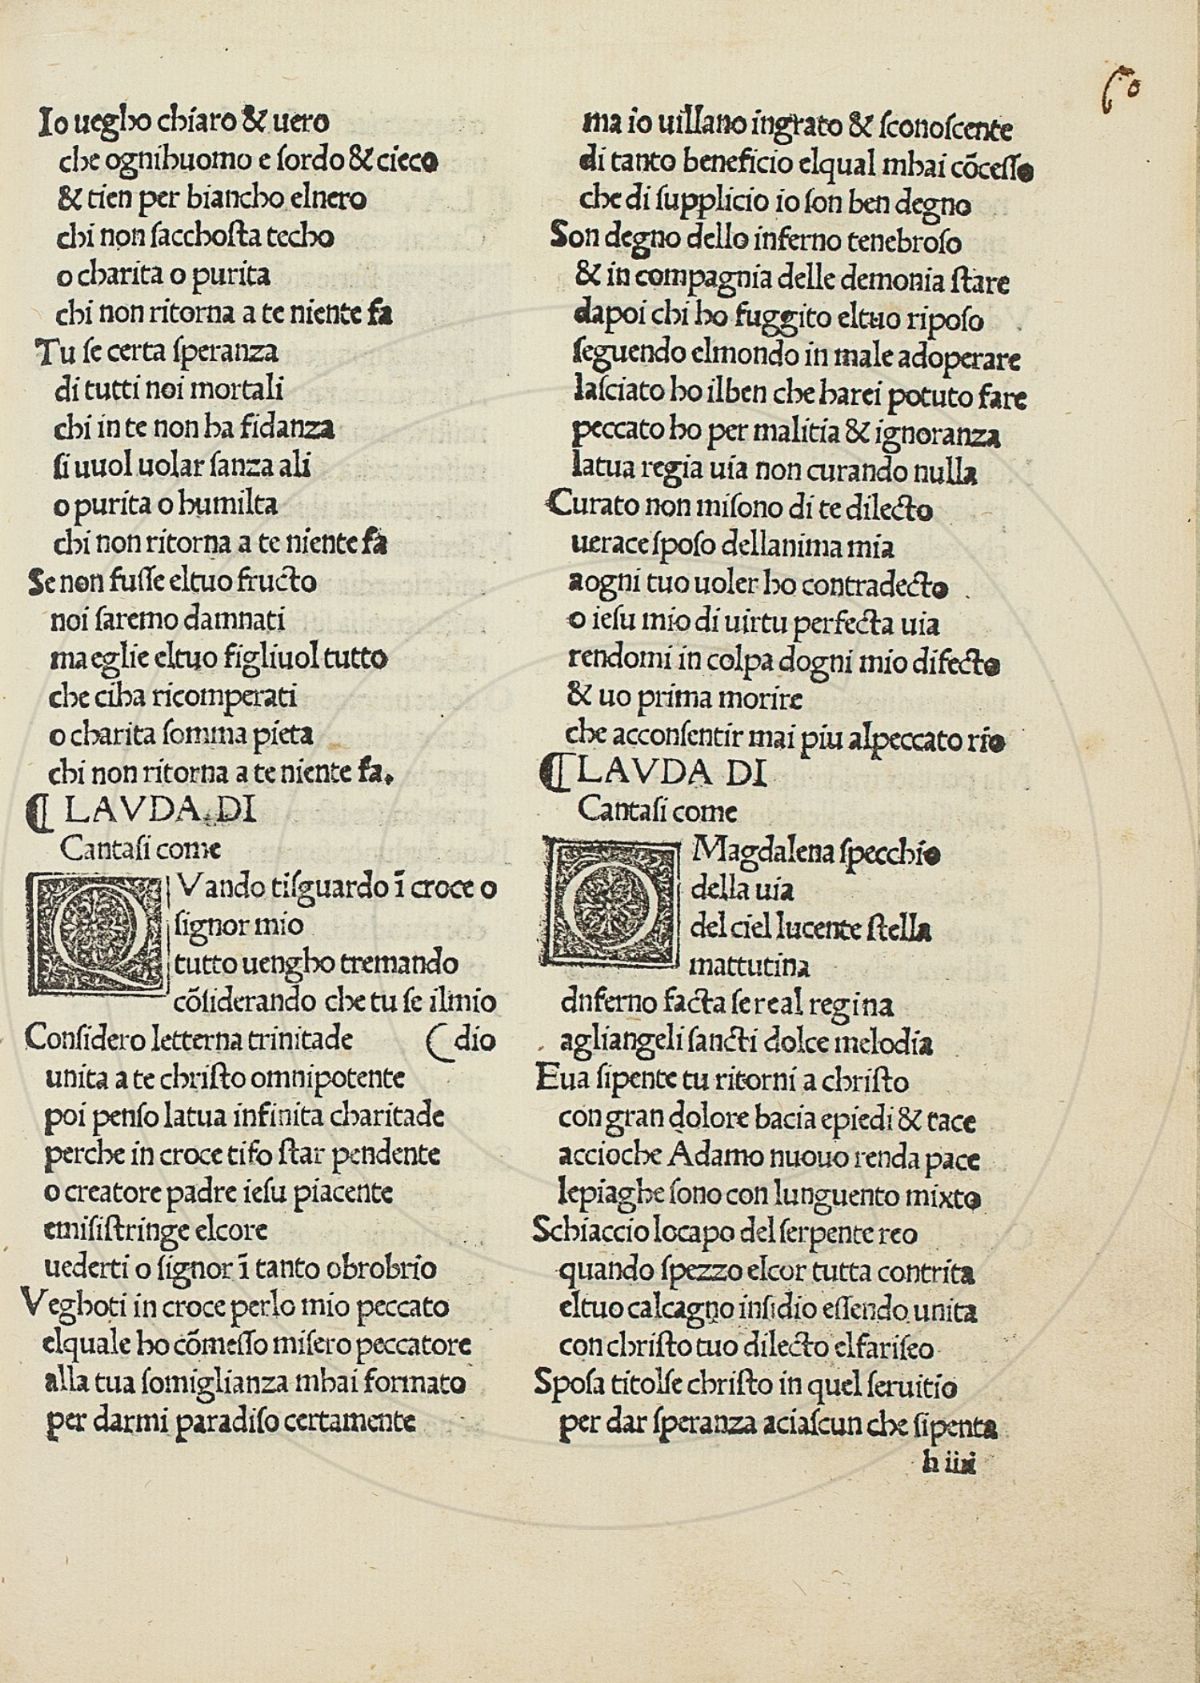 60
Io uegho chiaro & uero
che ognihuomo e sordo & cieco
& tien per biancho elnero
chi non sacchosta techo
o charita o purita
chi non ritorna a te niente fa
Tu se certa speranza
di tutti noi mortali
chi in te non ha fidanza
si uuol uolar sanza ali
o purita o humilta
chi non ritorna a te niente fa
Se non fusse eltuo fructo
noi saremo damnati
ma eglie eltuo figliuol tutto
che ciha ricomperati
o charita somma pieta
chi non ritorna a te niente fa.
¶ LAVDA DI
Cantasi come
QVando tisguardo ī croce o
signor mio
tutto uengho tremando
cōsiderando che tu se ilmio
Considero letterna trinitade (dio
unita a te christo omnipotente
poi penso latua infinita charitade
perche in croce tifo star pendente
o creatore padre iesu piacente
emisistringe elcore
uederti o signor ī tanto obrobrio
Veghoti in croce perlo mio peccato
elquale ho cōmesso misero peccatore
alla tua somiglianza mhai formato
per darmi paradiso certamente
ma io uillano ingrato & sconoscente
di tanto beneficio elqual mhai cōcesso
che di supplicio io son ben degno
Son degno dello inferno tenebroso
& in compagnia delle demonia stare
dapoi chi ho fuggito eltuo riposo
seguendo elmondo in male adoperare
lasciato ho ilben che harei potuto fare
peccato ho per malitia & ignoranza
latua regia uia non curando nulla
Curato non misono di te dilecto
uerace sposo dellanima mia
aogni tuo uoler ho contradecto
o iesu mio di uirtu perfecta uia
rendomi in colpa dogni mio difecto
& uo prima morire
che acconsentir mai piu alpeccato rio
¶ LAVDA DI
Cantasi come
O Magdalena specchio
della uia
del ciel lucente stella
mattutina
dnferno facta se real regina
agliangeli sancti dolce melodia
Eua sipente tu ritorni a christo
con gran dolore bacia epiedi & tace
accioche Adamo nuouo renda pace
lepiaghe sono con lunguento mixto
Schiaccio locapo del serpente reo
quando spezzo elcor tutta contrita
eltuo calcagno insidio essendo unita
con christo tuo dilecto elfariseo
Sposa titolse christo in quel seruitio
per dar speranza aciascun che sipenta
h iiii